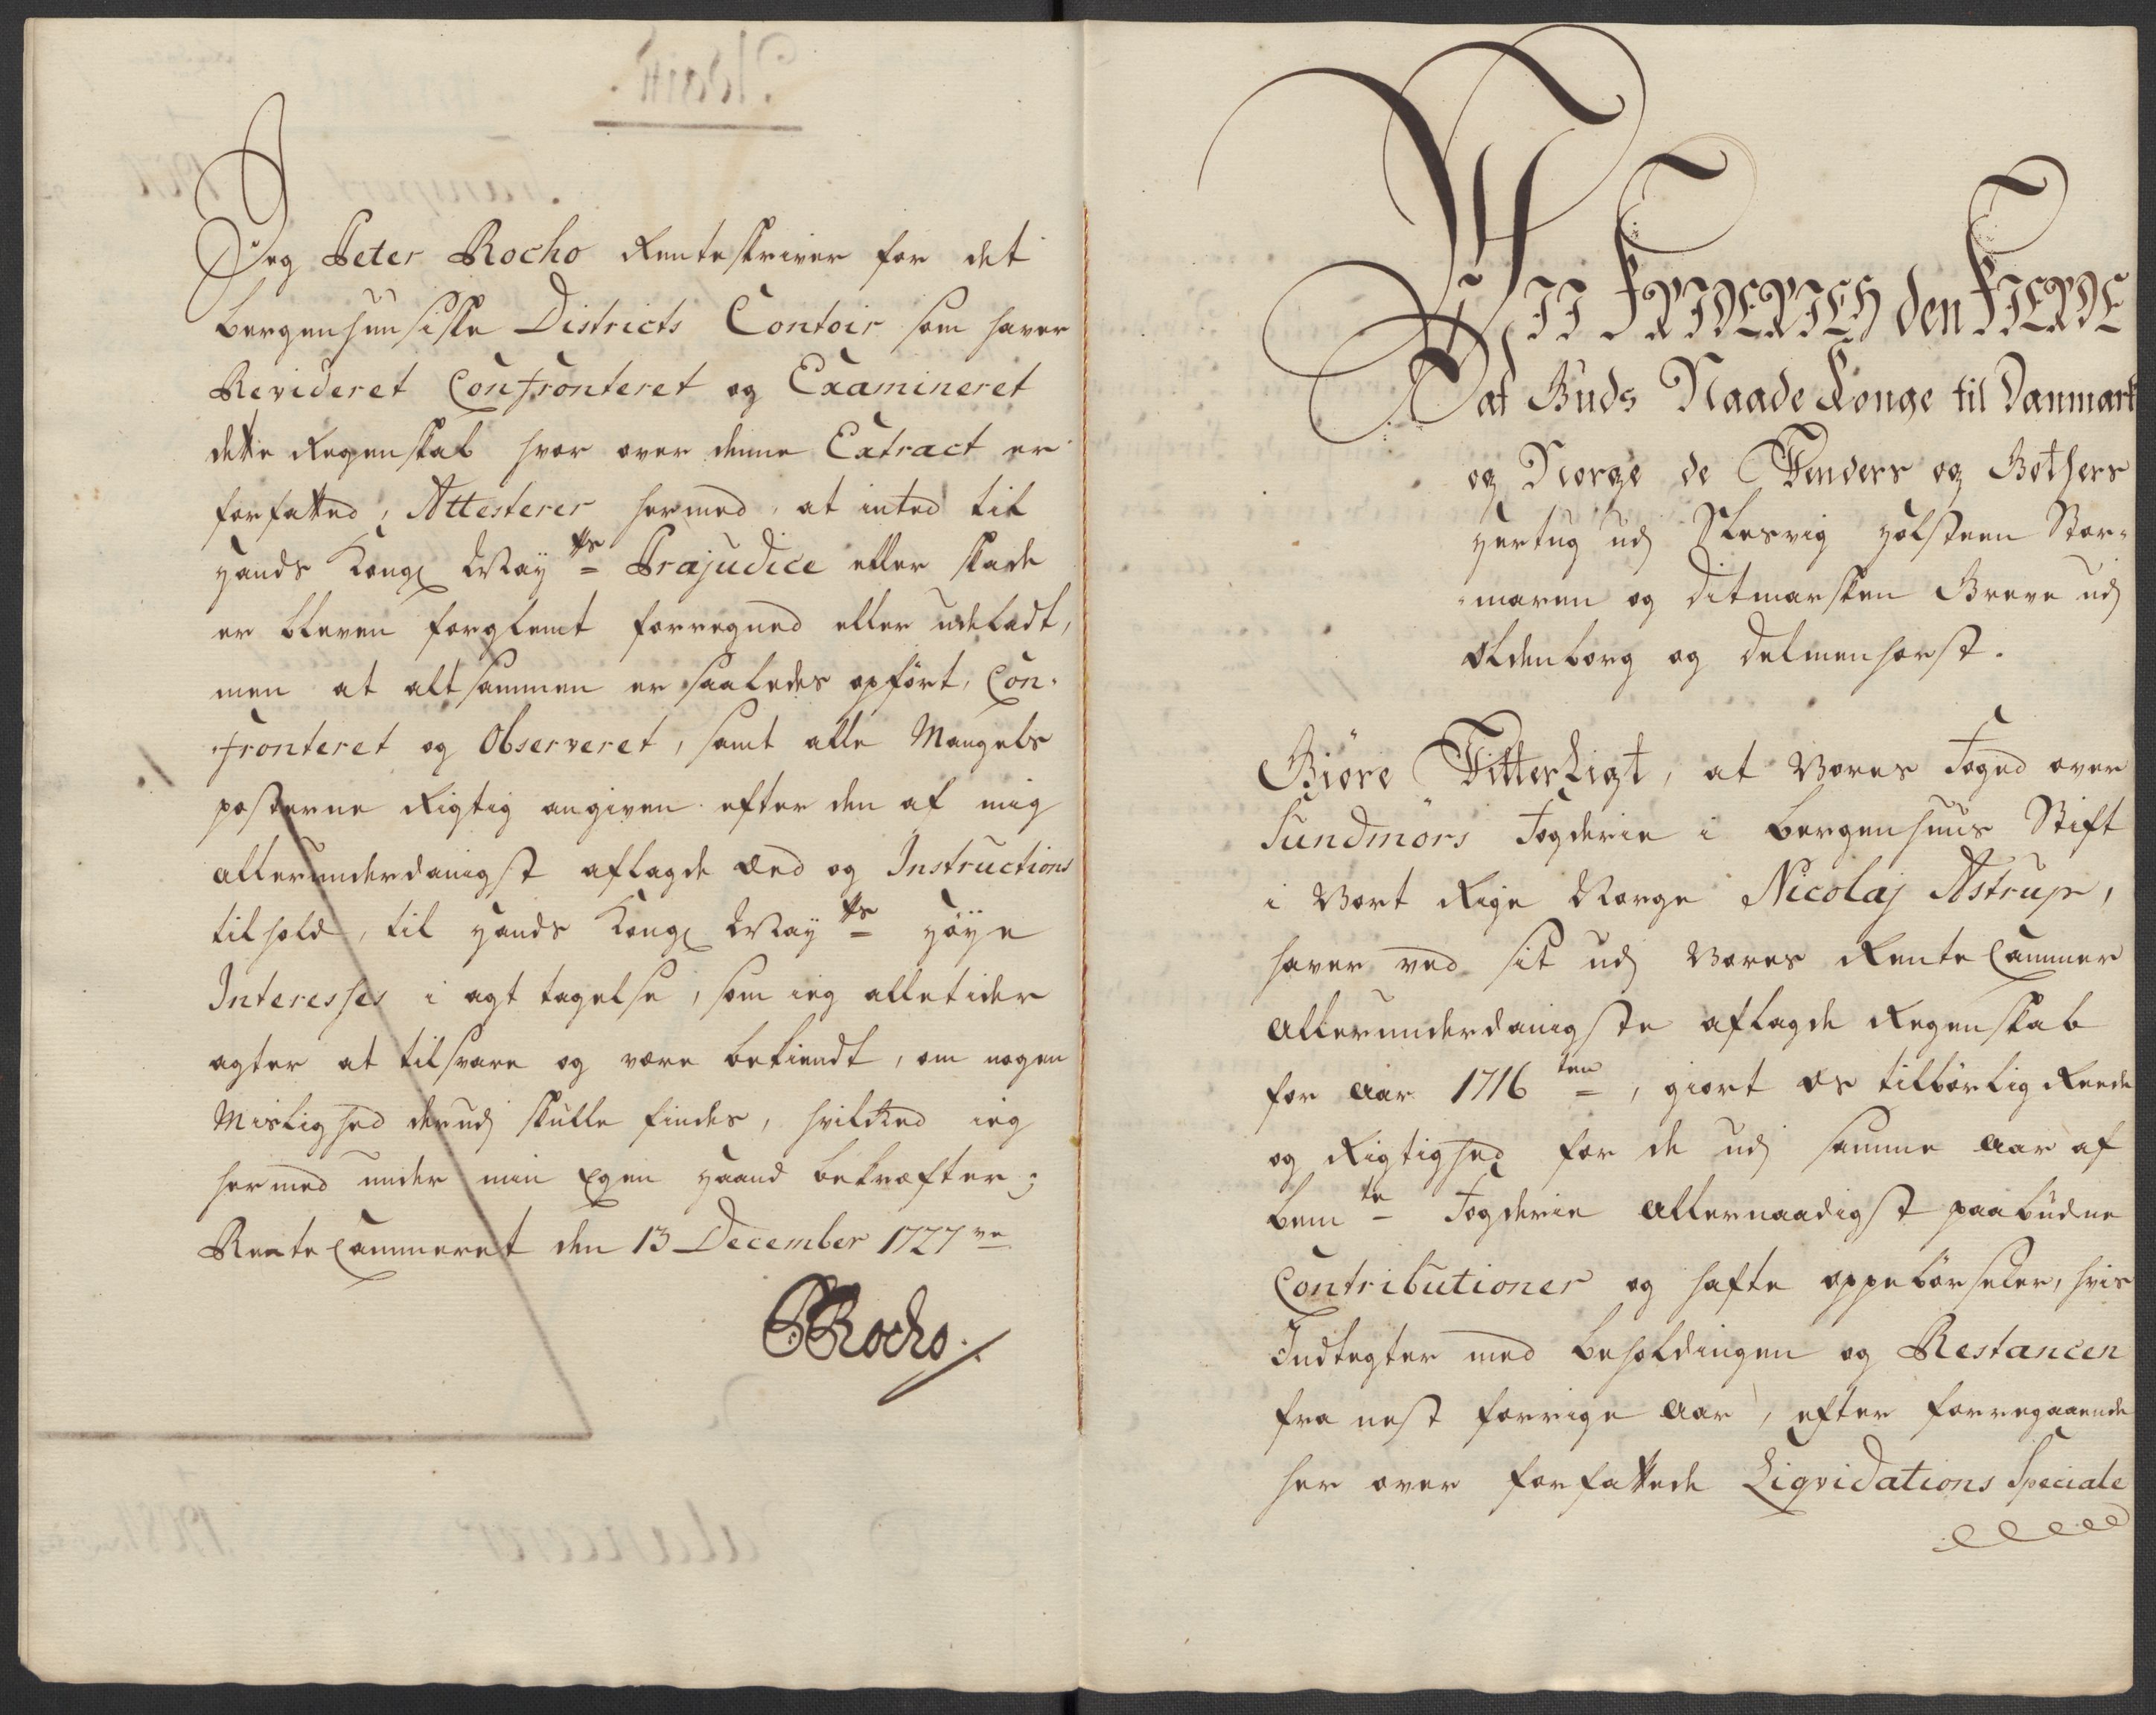 Jeg Peter Rocho Renteskriver for det
Bergenhuusiske Districts Contoir som haver
Revideret Confronteret og Examineret
dette Regenskab hvor over denne Extract er
forfatted, Attesterer hermed, at inted til
Hands Kongl Maytts Præjudice eller skade
er bleven forglemt forregned eller udeladt,
men at altsammen er saaledes opført, Con-
fronteret og Observeret, samt alle Mangels
posterne Rigtig angiven efter den af mig
allerunderdanigst aflagde Eed og Instructions
tilhold, til Hands Kongl Maytts Høye
Interesses i agt tagelse, som ieg alletider
agter at tilsvare og være bekiendt, om nogen
Mislighed derudj skulle findes, hvilcked ieg
hermed under min Egen Haand bekræfter;
Rente Cammeret den 13 December 1727ve
PRocho.
WII FRIDERICH den FIERDE
af Guds Naade Konge til Danmark
og Norge de Venders og Gothers
Hertug udj Slesvig Holsteen Stor-
maren og Ditmarsken Greve udj
Oldenborg og Delmenhorst.
Giøre Vitterligt, at Vores Foged over
Sundmørs Fogderie i Bergenhuus Stift
i Vort Rige Norge Nicolaj Astrup,
haver ved sit udj Vores Rente Cammer
allerunderdanigste aflagde Regenskab
for Aar 1716ten, giort Os tilbørlig Reede
og Rigtighed for de udj samme Aar af
bemte Fogderie allernaadigst paabudne
Contributioner og hafte oppebørseler, hvis
Indtegter med beholdingen og Restancen
fra nest forrige Aar, efter forregaaende
her over forfattede Liqvidations Speciale